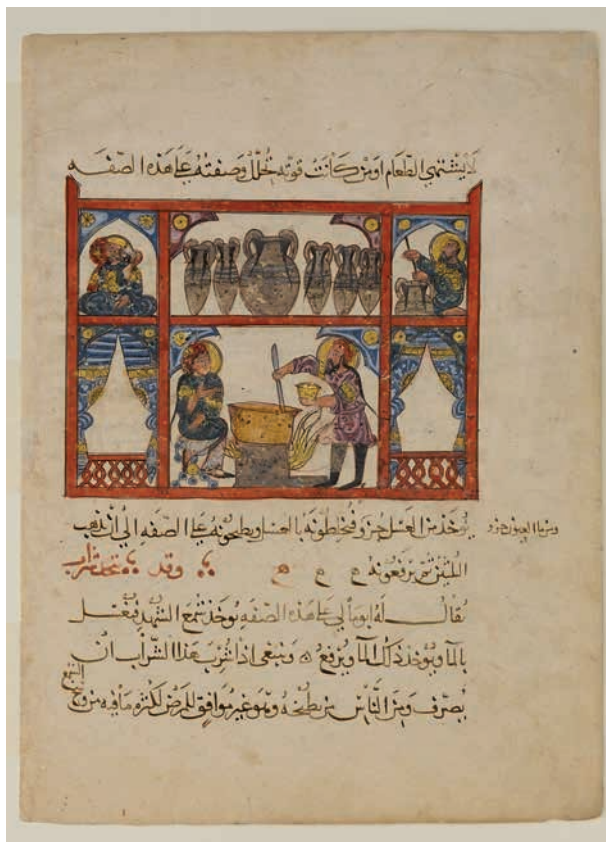 لا يشتهي الطعام او من كانت قوته تحلل وصفته على هذه الصفه
يؤخذ من العسل جزو فيخلطونه بالعسل ويطبخونه على الصفه الي ان يذهب
ومن ما العيون جزو
ثم يرفعونه وقد يتخذ شراب
يقال له ابومالي على هذه الصفه يوخذ شمع الشهد فيغسل
بالما ويوخذ ذلك الما ويرفع وينبغي اذا شرب هذا الشراب ان
الشمع
يصرف ومن الناس من يطبخه وهو غير موافق للمرضى لكثره ما فيه من وسخ